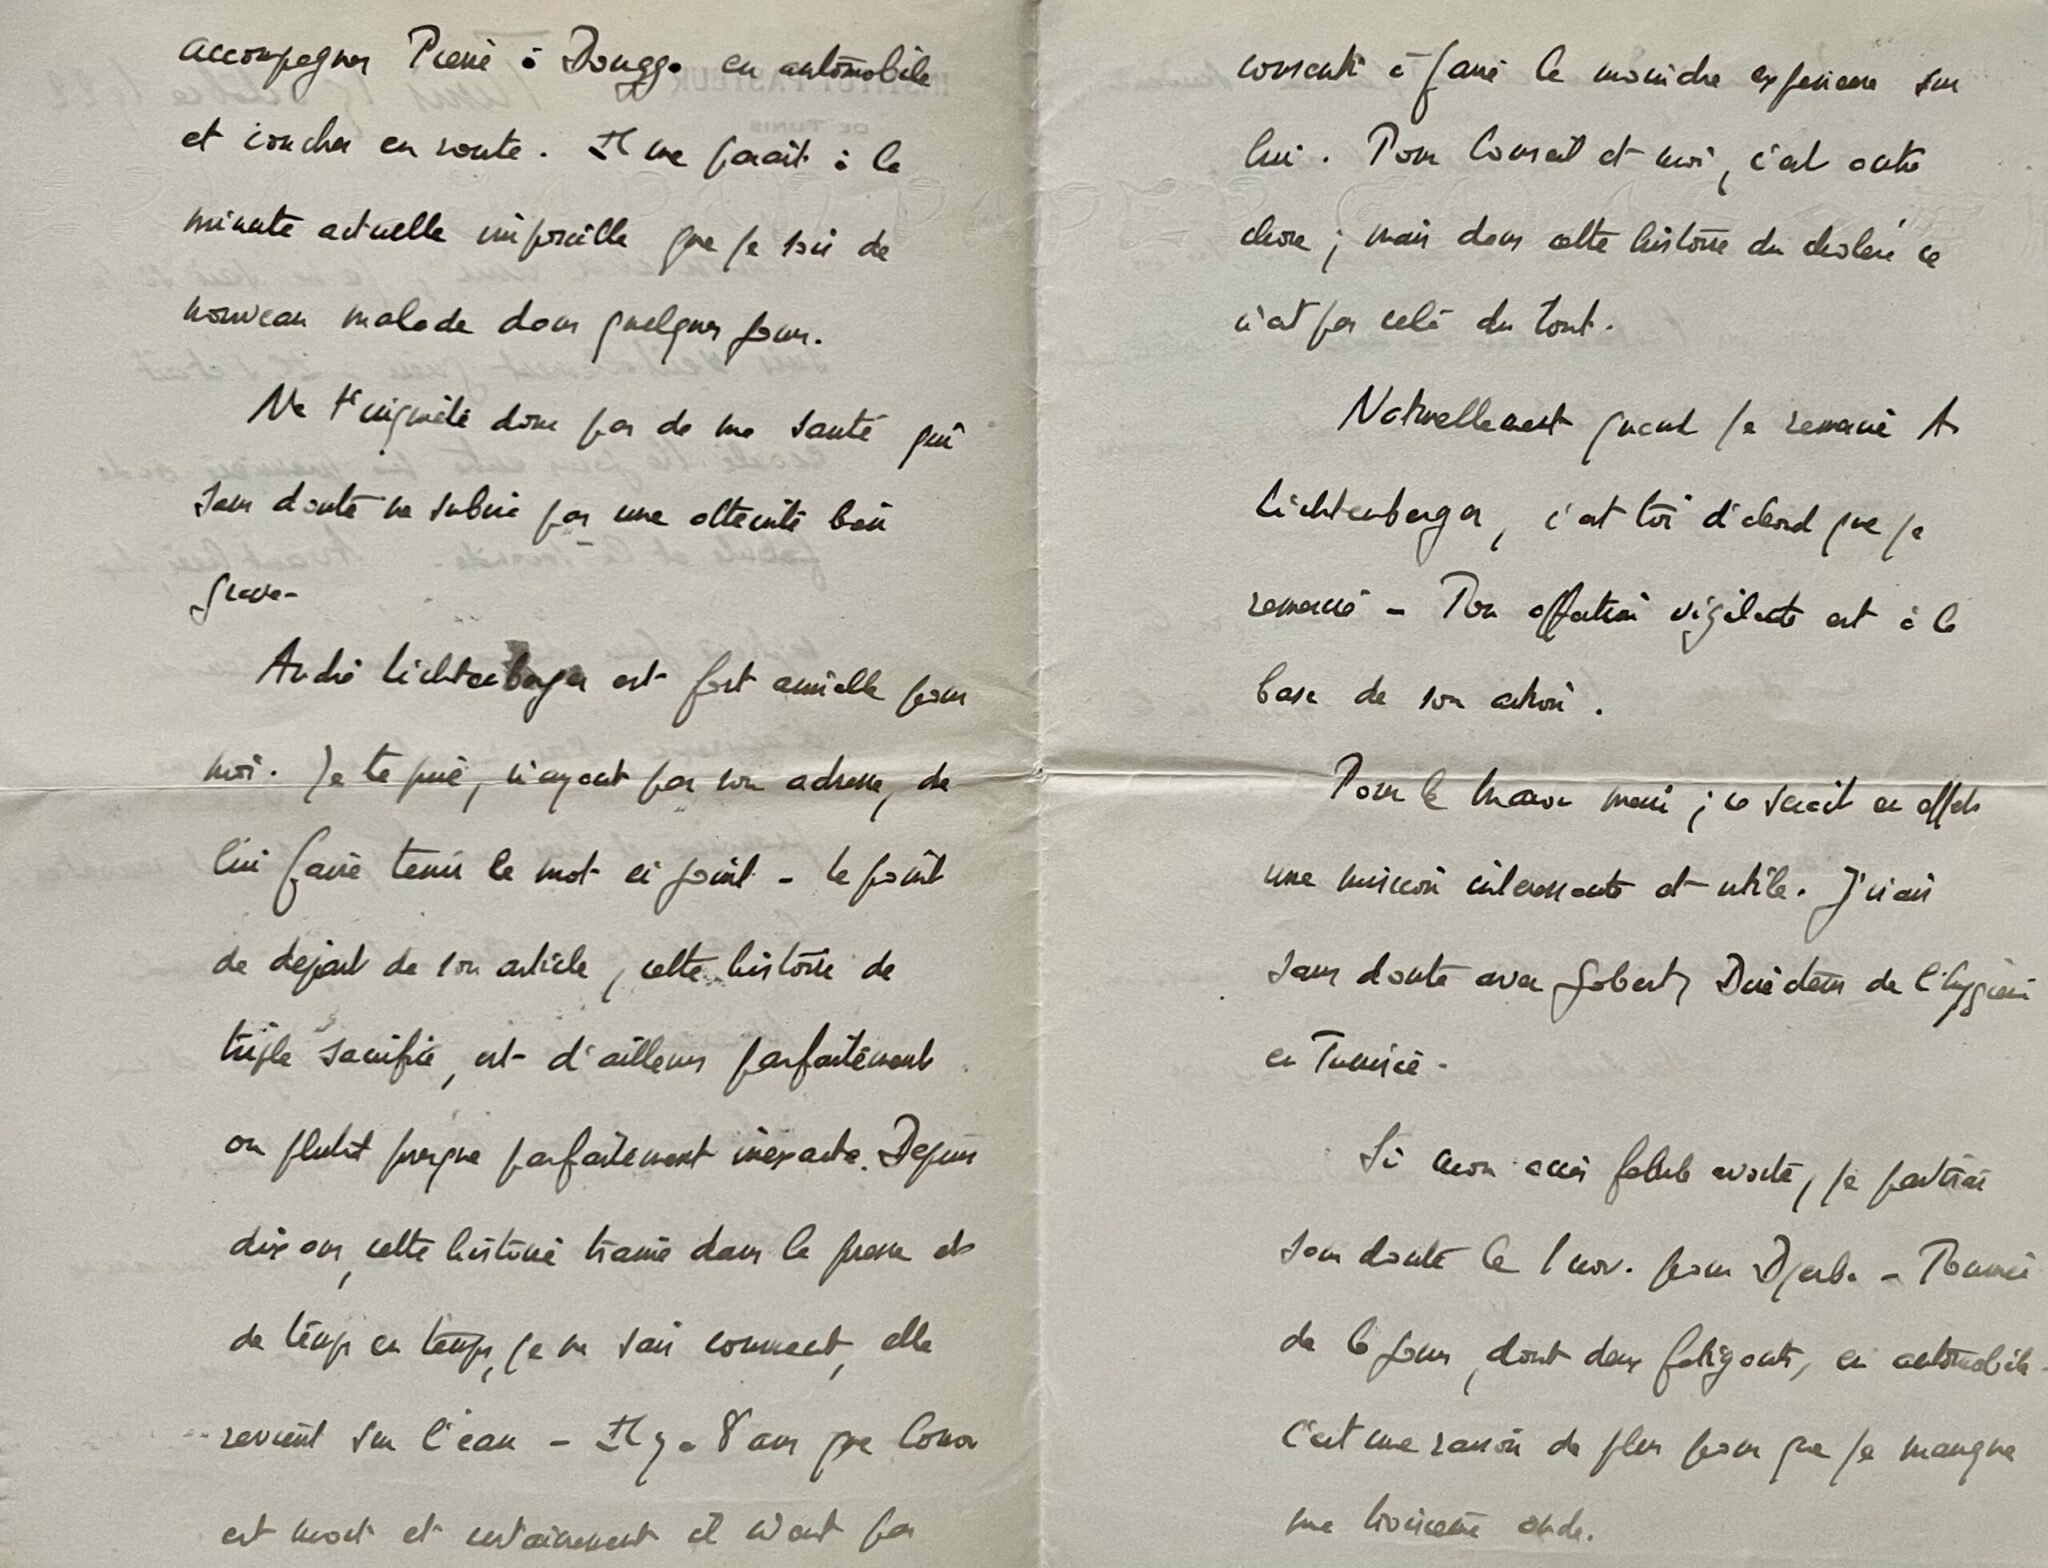 accompagner Pierre à Dougga en automobile
et coucher en route. Il me parait à la
minute actuelle impossible que je sois de
nouveau malade dans quelques jours.
Ne t'inquiète donc pas de ma santé qui
sans doute ne subira pas une atteinte bien
grave -
André Lichtenberger est fort amielle pour
moi. Je te prie, n'ayant pas son adresse, de
lui faire tenir le mot ci joint - Le point
de départ de son article, cette histoire de
triple sacrifice, est d'ailleurs parfaitement
ou plutôt presque parfaitement inexacte. Depuis
dix ans, cette histoire traine dans la presse et
de temps en temps, je ne sais comment, elle
revient sur l'eau - Il y a 8 ans que Conor
est mort et certainement il n'eut pas
consenti à faire la moindre expérience sur
lui. Pour Conseil et moi, c'est autre
chose ; mais dans cette histoire du choléra ce
n'est pas cela du tout.
Naturellement quand je remercie A.
Lichtenberger, c'est toi d'abord que je
remercie - Ton affection vigilante est à la
base de son action.
Pour le Maroc merci ; ce serait en effet
une mission intéressante et utile. J'irais
sans doute avec Gobert, Directeur de l'Hygiène
en Tunisie -
Si mon accès fébrile avorte, je partirai
sans doute le 1 nov. pour Djerba - Tournée
de 6 jours, dont deux fatigants, en automobile -
C'est une raison de plus pour que je manque
ma troisième onde.